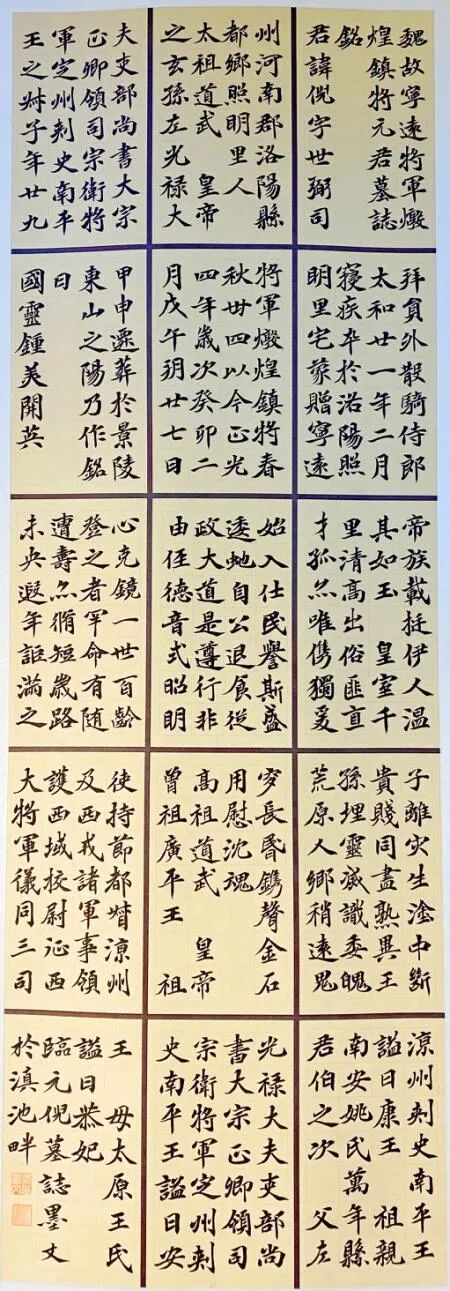 魏故寧遠將軍燉
煌鎮將元君墓誌
銘
君諱倪字世弼司
州河南郡洛陽縣
都鄉照明里人
太祖道武　皇帝
之玄孫左光禄大
夫吏部尚書大宗
正卿領司宗衛將
軍定州刺史南平
王之叔子年廿九
拜負外散騎侍郎
太和廿一年二月
寝疾卒於洛陽照
明里宅蒙贈寧遠
將軍燉煌鎮將春
秋卌四以今正光
四年歲次癸卯二
月戊午朔廿七日
甲申遷葬於景陵
東山之陽乃作銘
曰
國靈鍾美開英
帝族載挺伊人温
其如玉　皇室千
里清高出俗匪直
才孤亦唯儁獨爰
始入仕民譽斯盛
逶虵自公退食從
政大道是遵行非
由侄德音式昭明
心克鏡一世百齡
登之者罕命有隨
遭壽亦脩短歲路
未央遐年詎滿之
子離灾生塗中斷
貴賤同盡熟異王
孫埋靈滅識委魄
荒原人鄉稍遠鬼
穸長昬鐫聲金石
用慰沈魂
高祖道武　皇帝
曾祖廣平王　祖
使持節都督凉州
及西戎諸軍事領
護西域校尉征西
大將軍儀同三司
凉州刺史南平王
謚曰康王　祖親
南安姚氏萬年縣
君伯之次　父左
光禄大夫吏部尚
書大宗正卿領司
宗衛將軍定州刺
史南平王謚曰安
王　母太原王氏
謚曰恭妃
臨元倪墓誌墨文
於滇池畔